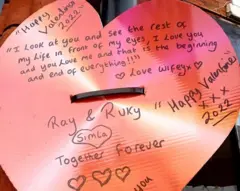 "Happy
Valentines
2022
"I look at you and see the rest of
my life in front of my eyes, I love you
and you love me and that is the beginning
and end of everything!!!!"
♡ Love Wifeyx♡
Ray & Ruky
Simla
Together forever
♡♡♡
you
"Happy Valentine
x x x
2022